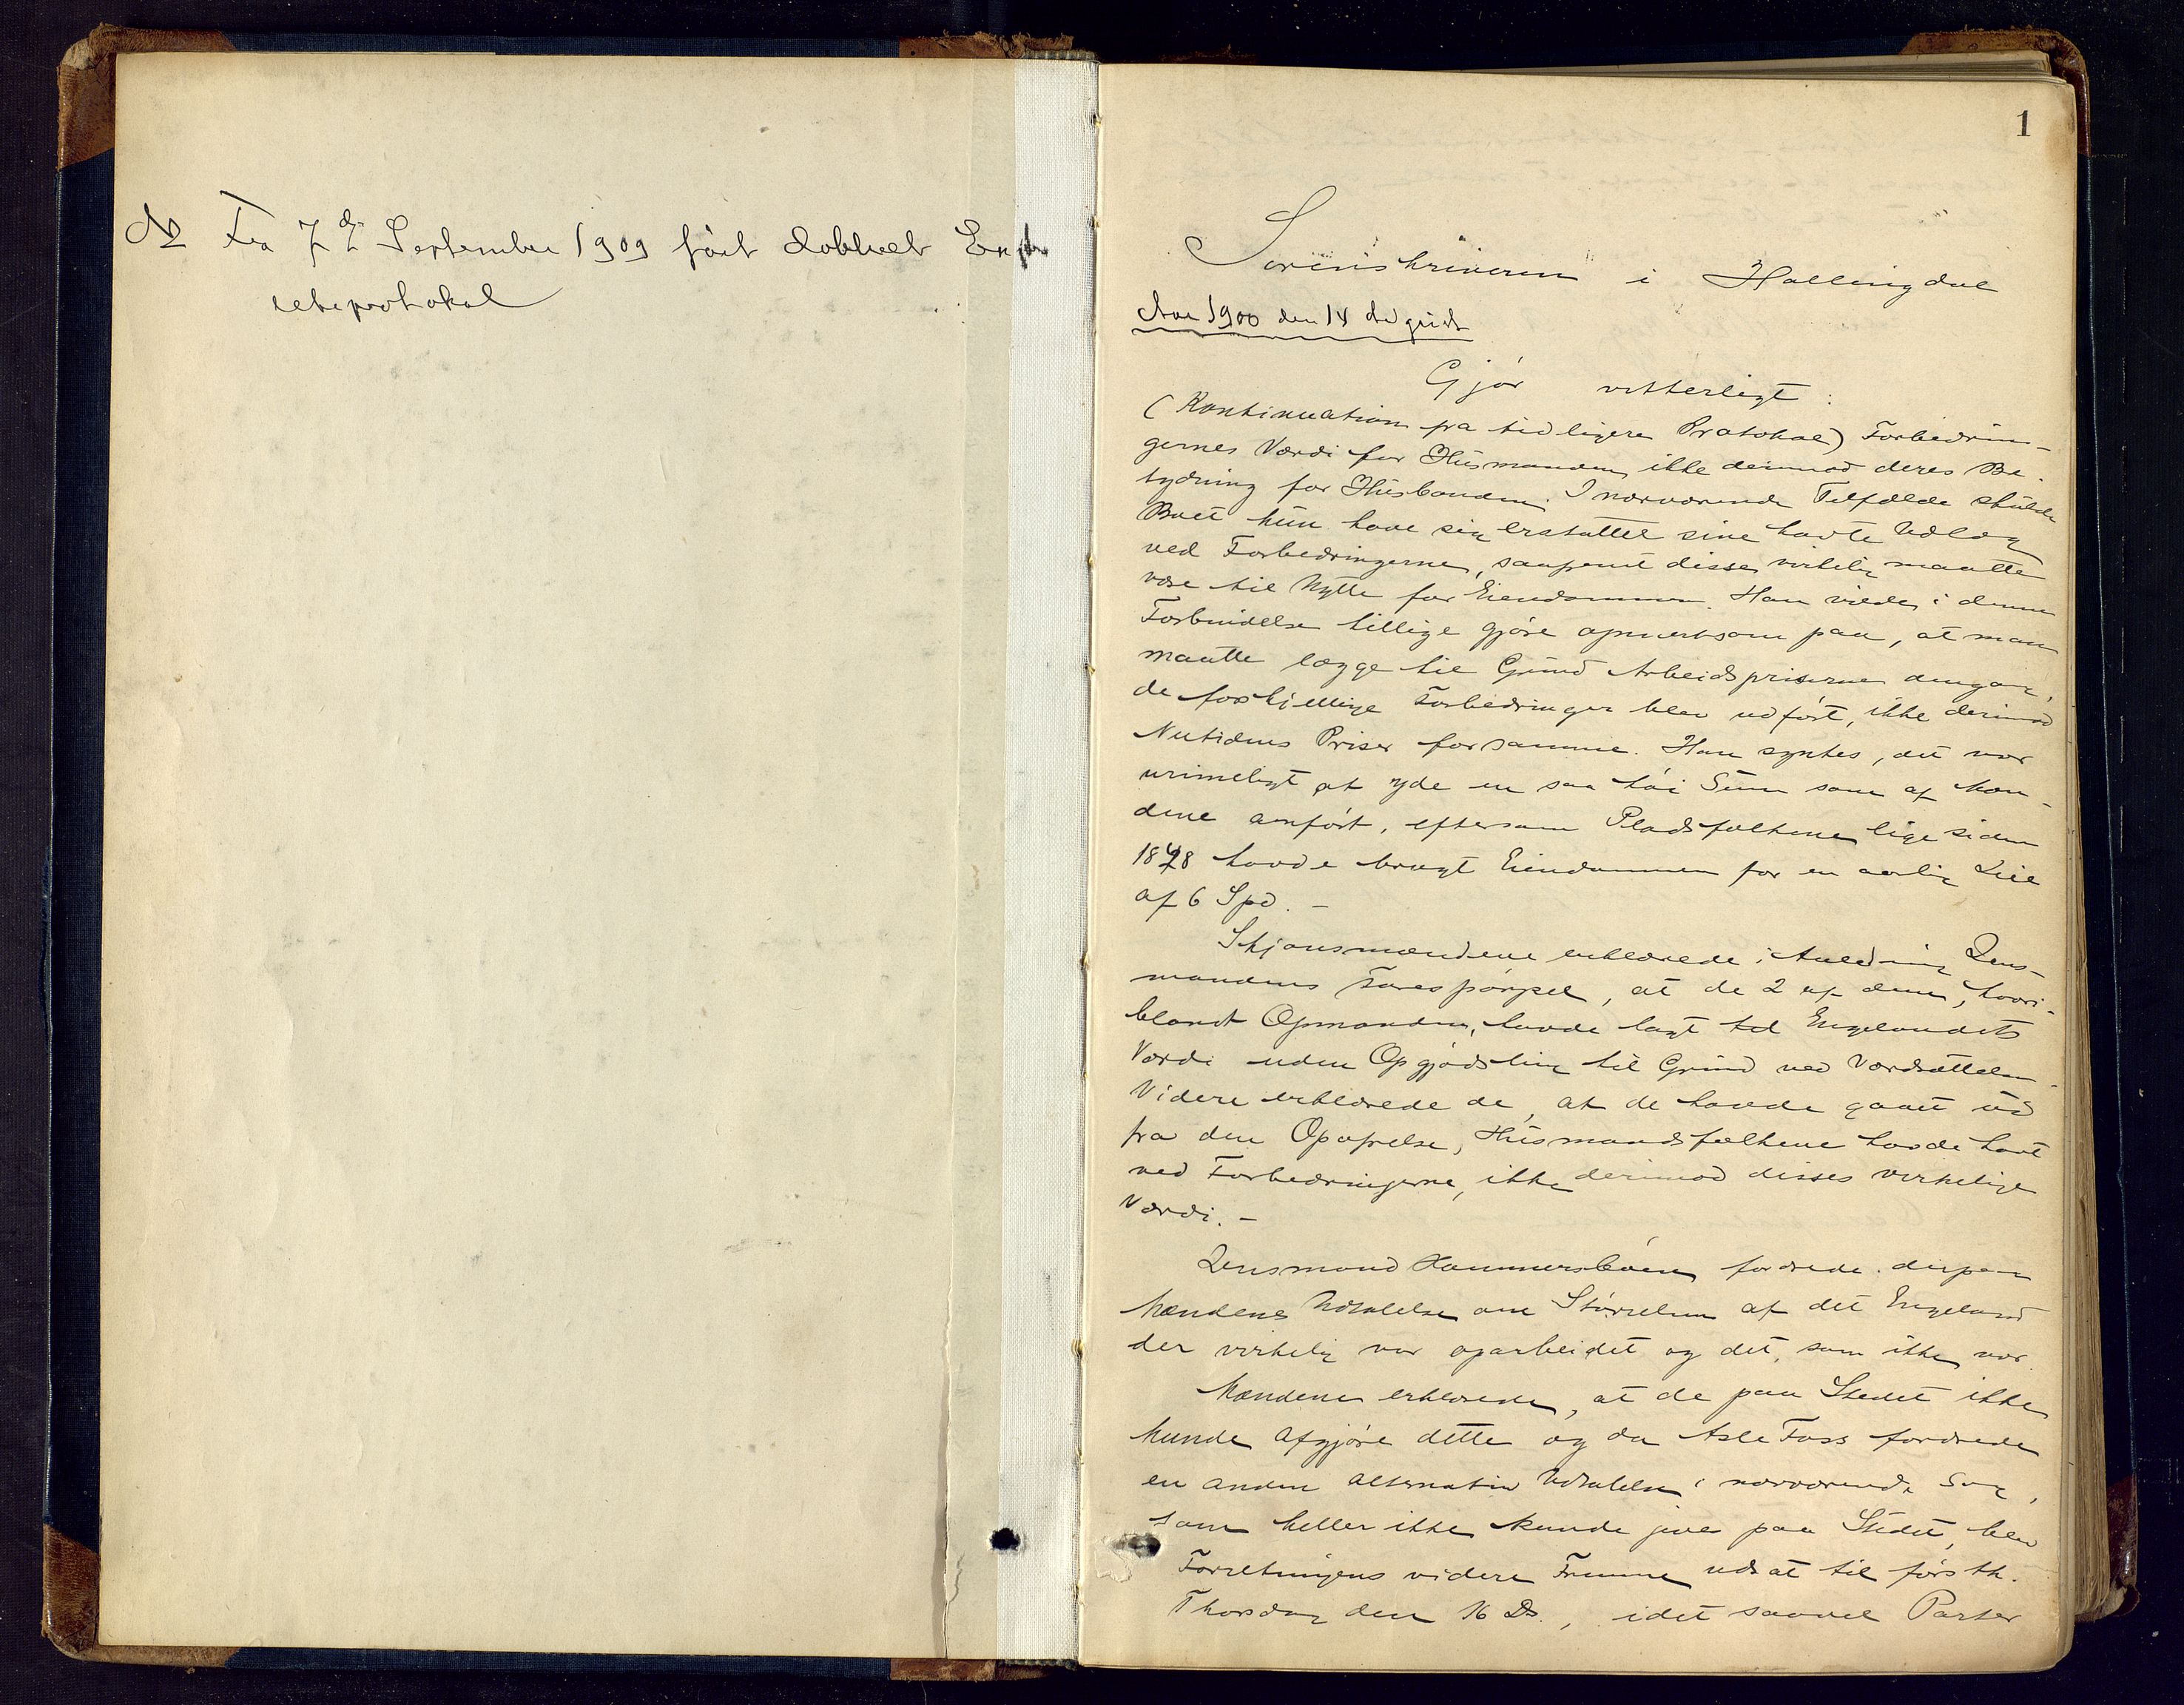 NB Fra 7de September 1909 ført dobbelt Extra
retsprotokol
1
Sorenskriveren i Hallingdal
Aar 1900 den 14 August
Gjør vitterligt:
(Kontinuation fra tidligere Protokol) Forbedrin-
gernes Værdi for Husmanden, ikke derimod deres Be-
tydning for Husbonden. I nærværende Tilfælde skulde
Boet kun have sig erstattet sine havte Udlæg
ved Forbedringerne, saafremt disse virkelig maatte
være til Nytte for Eiendommen. Han vilde i denne
Forbindelse tillige gjøre opmerksom paa, at man
maatte lægge til Grund Arbeidspriserne dengang,
de forskjellige Forbedringer blev udført, ikke derimod
Nutidens Priser for samme. Han syntes, det var
urimeligt at yde en saa høi Sum som af Mæn-
dene anført, eftersom Pladsfolkene lige siden
1848 havde brugt Eiendommen for en aarlig Leie
af 6 Spd. -
Skjønsmændene erklærede i Anledning Lens-
mandens Forespørgsel, at de 2 af dem, hvori-
blandt Opmanden, havde lagt til Engelandets
Værdi uden Opgjødsling til Grund ved Værdsættelsen.
Videre erklærede de, at de havde gaaet ud
fra den Opofrelse, Husmandsfolkene havde havt
ved Forbedringerne, ikke derimod disses virkelige
Værdi. -
Lensmand Hammersbøen fordrede derpaa
Mændenes Udtalelse om Størrelsen af det Engeland
der virkelig var oparbeidet og det, som ikke var.
Mændene erklærede, at de paa Stedet ikke
kunde afgjøre dette og da Asle Foss fordrede
en anden alternativ Udtalelse i nærværende Sag,
som heller ikke kunde gives paa Stedet, blev
Forretningens videre Fremme udsat til førstk.
Thorsdag den 16 Ds., idet saavel Parter